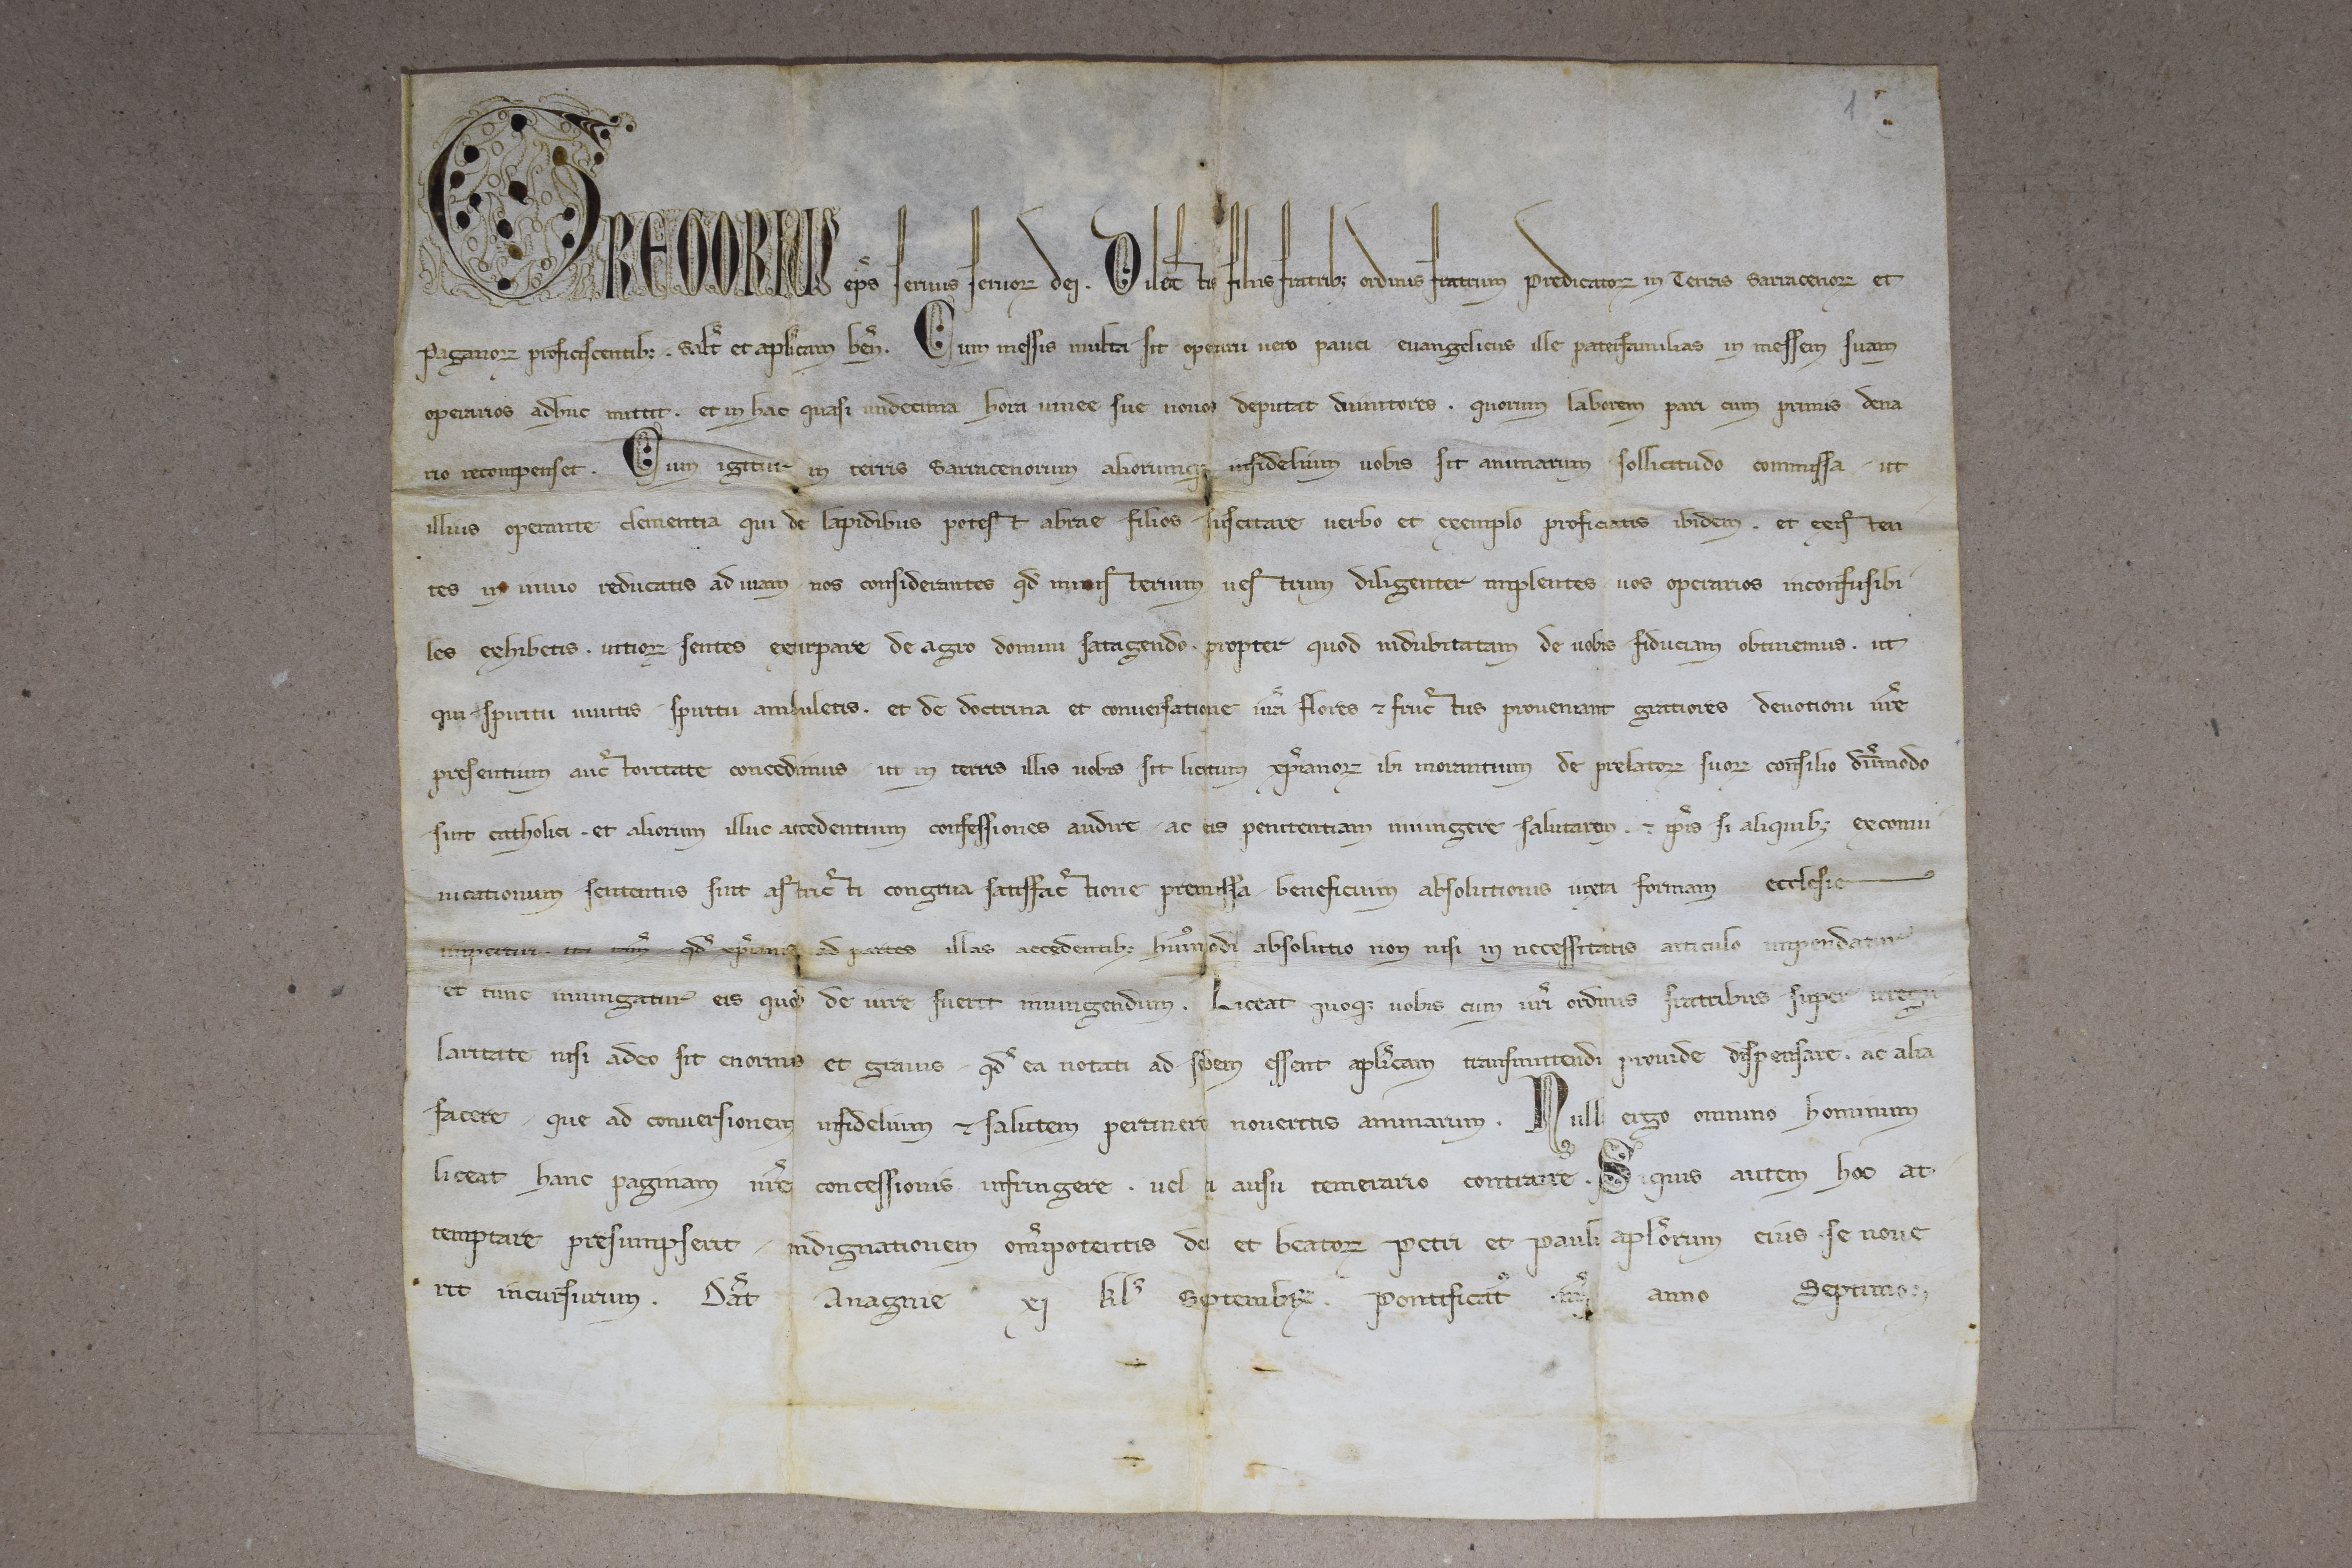 1
GREGORIUS ep̄s seruus seruoꝝ dei. Dilectis filiis fratribꝫ ordinis fratrum Predicatoꝝ in Terris Sarracenoꝝ et
Paganoꝝ proficiscentibꝫ. Salt̄ et aplicam ben̄. Cum messis multa sit operarii uero pauci euangelicus ille paterfamilias in messem suam
operarios adhuc mittit. et in hac quasi undecima hora uinee sue nouos deputat cultores. quorum laborem pari cum primis dena
rio recompenset. Cum igitur in terris Sarracenorum aliorumqꝫ infidelium uobis sit animarum sollicitudo commissa ut
illius operante clementia qui de lapidibus potest abrae filios suscitare uerbo et exemplo proficiatis ibidem. et existen
tes in inuio reducatis ad uiam nos considerantes qd̄ ministerium uestrum diligenter implentes uos operarios inconfusibi
les exhibetis. uitioꝝ sentes extirpare de agro domini satagendo. propter quod indubitatam de uobis fiduciam obtinemus. ut
qui spiritu uiuitis spiritu ambuletis. et de doctrina et conuersatione ūra flores ⁊ fructus proueniant gratiores deuotioni ūre
presentium auctoritate concedimus ut in terris illis uobis sit licitum xp̄ianoꝝ ibi morantium de prelatoꝝ suoꝝ consilio dūmodo
sint catholici et aliorum illuc accedentium confessiones audire ac eis penitentiam iniungere salutarem. ⁊ ip̄is si aliquibꝫ excomu
nicationum sententiis sint astricti congrua satisfactione premissa beneficium absolutionis iuxta formam ecclesie
impertiri. ita tam̄ qd̄ xp̄ianis ad partes illas accedentibꝫ huiōmodi absolutio non nisi in necessitatis articulo impendatur
et tunc iniungatur eis quod de iure fuerit iniungendum. Liceat quoqꝫ uobis cum ūri ordinis fratribus super irregu
laritate nisi adeo sit enormis et grauis qd̄ ea notati ad sedem essent aplicam transmittendi prouide dispensare. ac alia
facere que ad conuersionem infidelium ⁊ salutem pertinere noueritis animarum. Nulli ergo omnino hominum
liceat hanc paginam nr̄e concessionis infringere. uel ei ausu temerario contraire. Siquis autem hoc at
temptare presumpserit indignationem om̄ipotentis dei et beatoꝝ Petri et Pauli aplorum eius se noue
rit incursurum. Dat̄ Anagnie xj kl̄ Septembꝝ. Pontificat̄ nr̄i anno Septimo